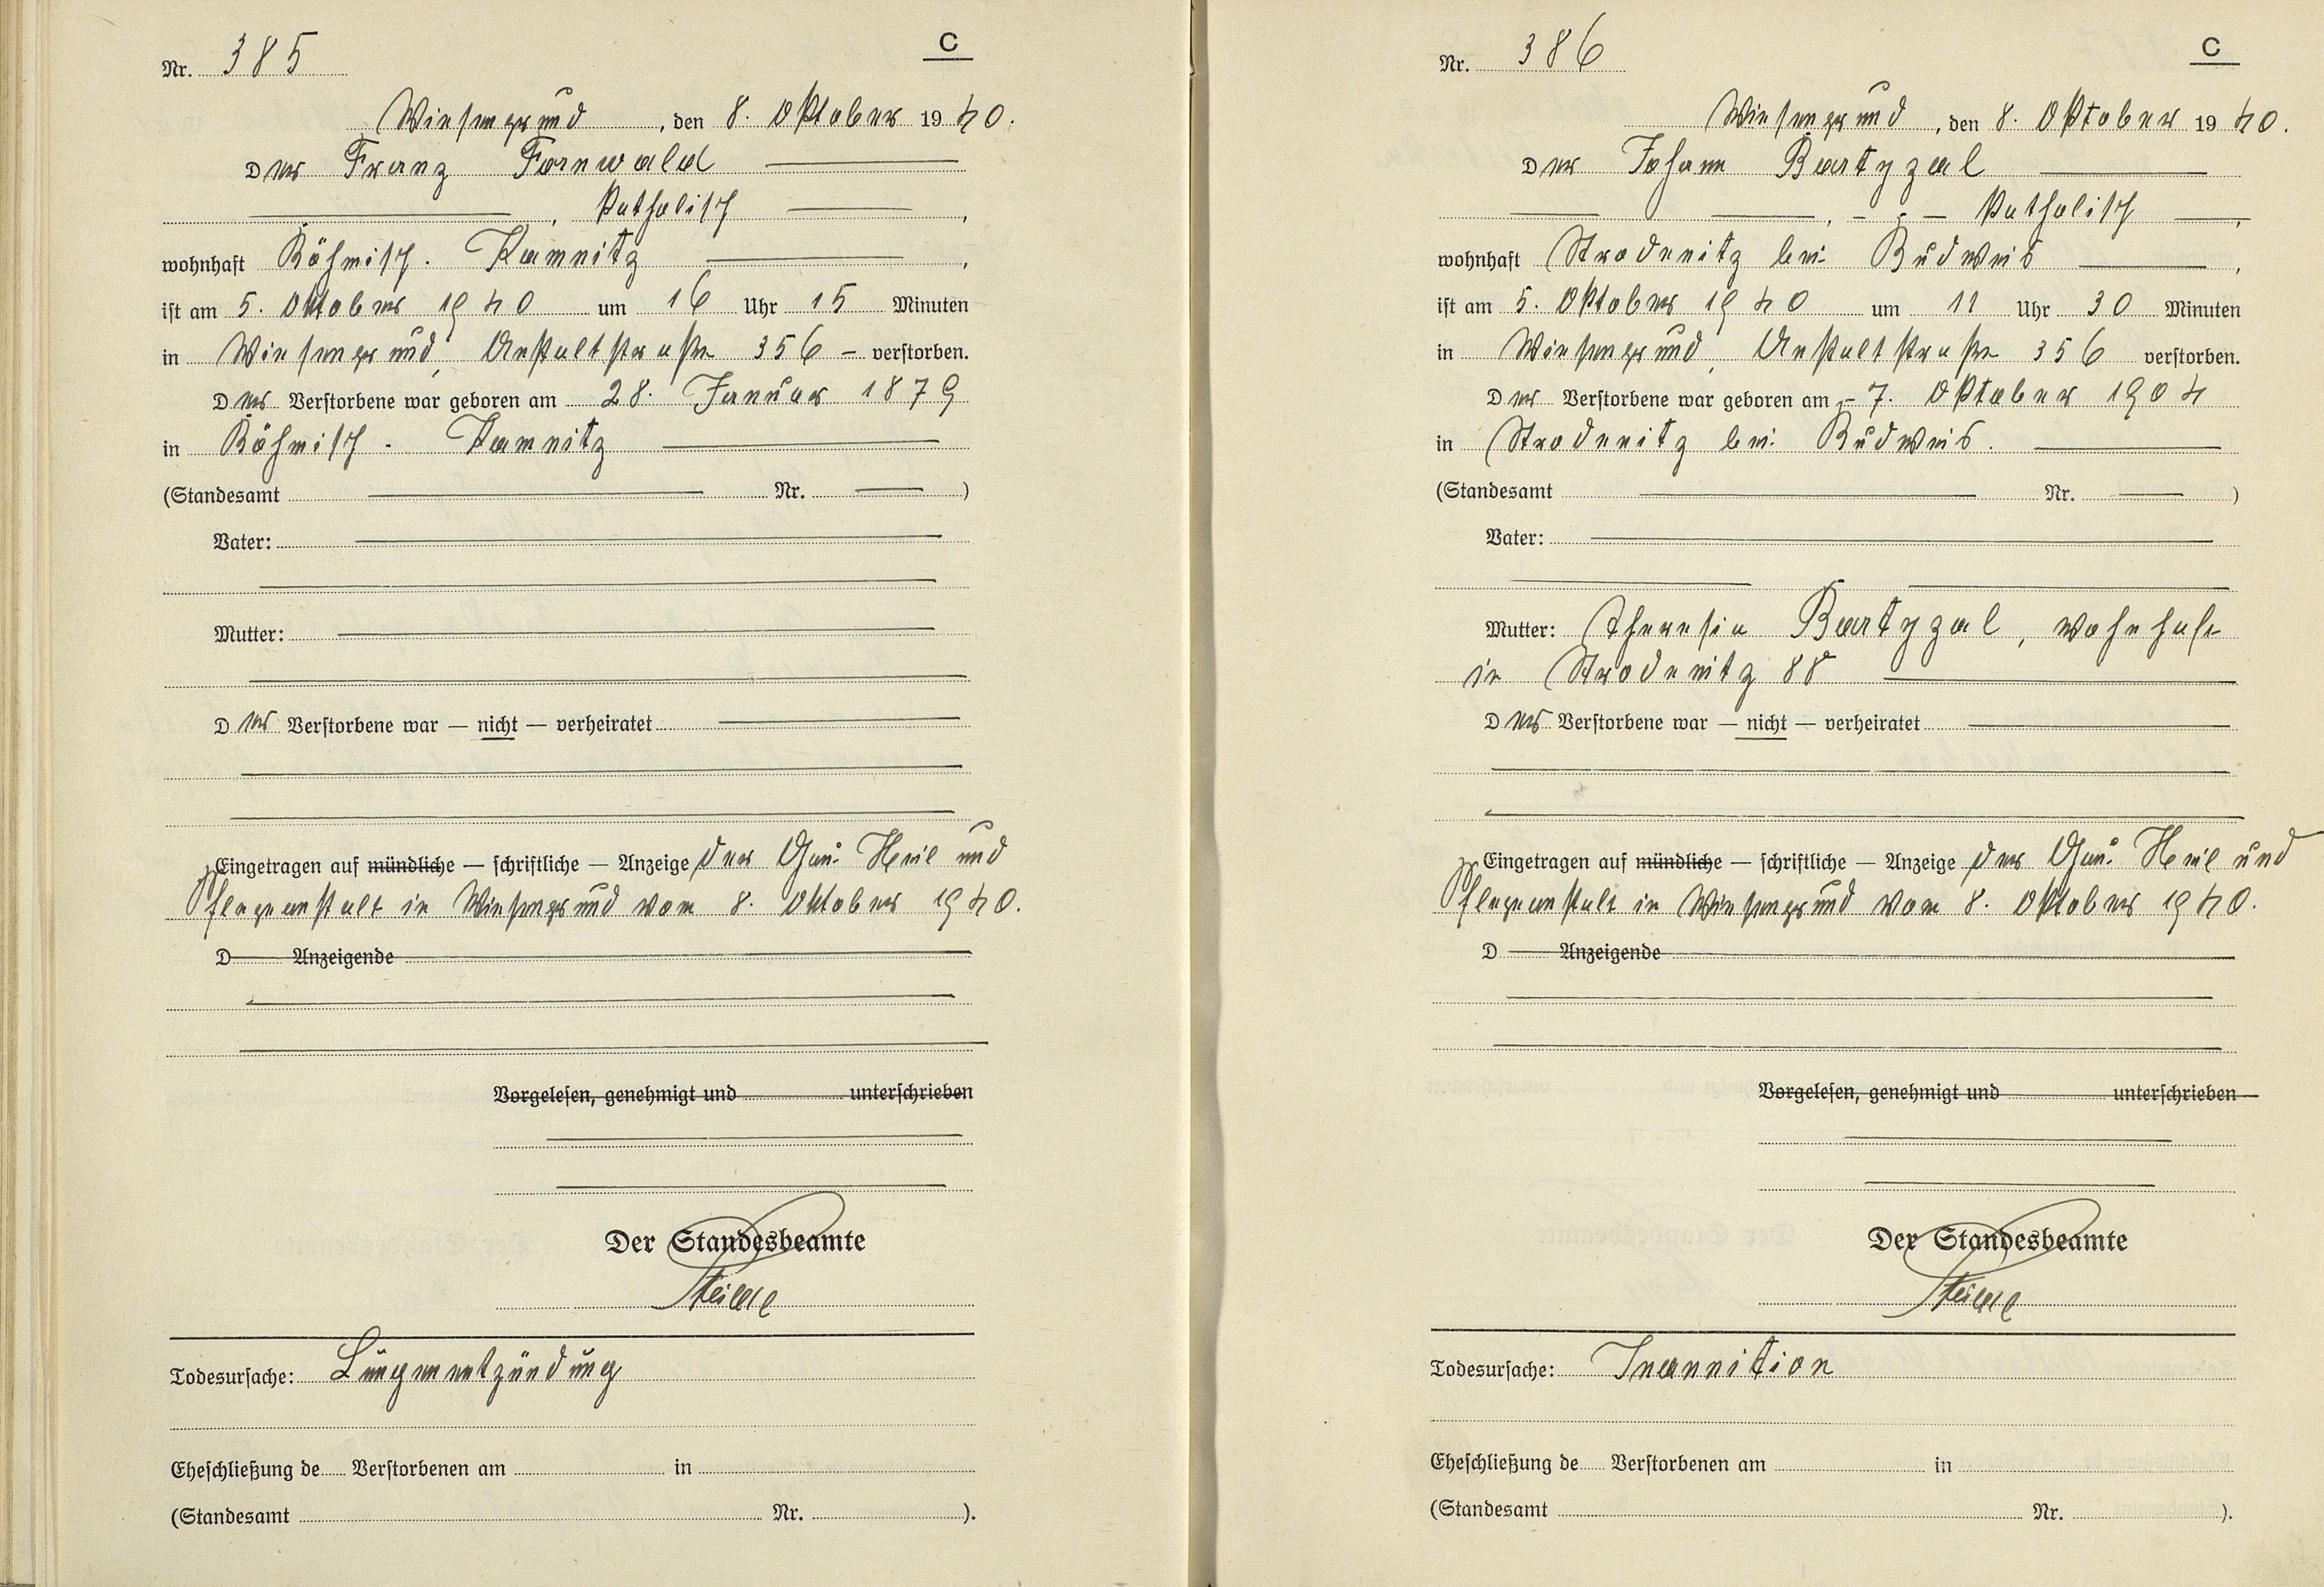 C
Nr. 385
Wiesengrund, den 8. Oktober 1940.
Der Franz Fornwald
, katholisch,
wohnhaft Böhmisch. Kamnitz,
ist am 5. Oktober 1940 um 16 Uhr 15 Minuten
in Wiesengrund, Anstaltstraße 356 – verstorben.
Der Verstorbene war geboren am 28. Januar 1879
in Böhmisch - Kamnitz
(Standesamt Nr. )
Vater:
Mutter:
Der Verstorbene war — nicht — verheiratet
Eingetragen auf mündliche — schriftliche — Anzeige der Gau. Heil und
Pflegeanstalt in Wiesengrund vom 8. Oktober 1940.
D Anzeigende
Vorgelesen, genehmigt und unterschrieben
Der Standesbeamte
Todesursache: Lungenentzündung
Eheschließung de Verstorbenen am in
(Standesamt Nr. ).
C
Nr. 386
Wiesengrund, den 8. Oktober 1940.
Der Johann Bartyzal
, - . - katholisch,
wohnhaft Strodenitz bei Budweis,
ist am 5. Oktober 1940 um 11 Uhr 30 Minuten
in Wiesengrund, Anstaltstraße 356 verstorben.
Der Verstorbene war geboren am – 7. Oktober 1904
in Strodenitz bei Budweis.
(Standesamt Nr. )
Vater:
Mutter: Theresia Bartyzal, wohnhaft
in Strodenitz 88
Der Verstorbene war — nicht — verheiratet
Eingetragen auf mündliche — schriftliche — Anzeige der Gau. Heil und
Pflegeanstalt in Wiesengrund vom 8. Oktober 1940.
D Anzeigende
Vorgelesen, genehmigt und unterschrieben
Der Standesbeamte
Todesursache: Inannition
Eheschließung de Verstorbenen am in
(Standesamt Nr. ).